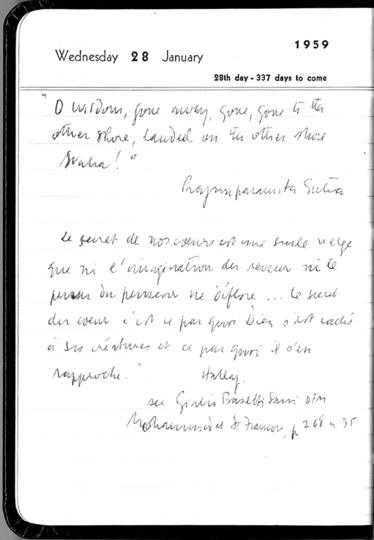 1959
Wednesday 28 January
28th day - 337 days to come
"O wisdom, gone away, gone, gone to the
other shore, landed on the other shore
Svaha!"
Prajnaparamita Sutra
Le secret de nos cœurs est une seule vierge
que ni l'imagination du reveur ni le
penser du penseur ne déflore ... le secret
du cœur c'est ce par quoi Dieu s'est caché
à ses créatures et ce par quoi il s'en
rapproche."
Hallaj.
see Giulio Basetti Sani OFM
Mohammed et St Francois, p 268 n 35